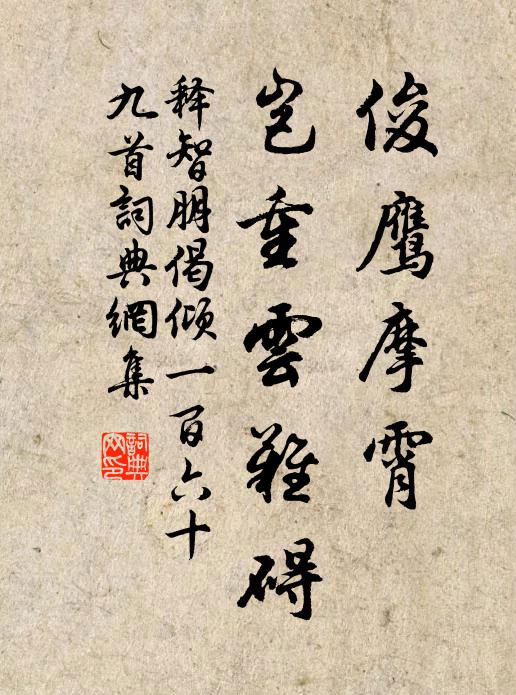 俊鹰摩霄
岂重雲難碍
释智朋偈倾一百六十
九首詞典網集
詞典网印